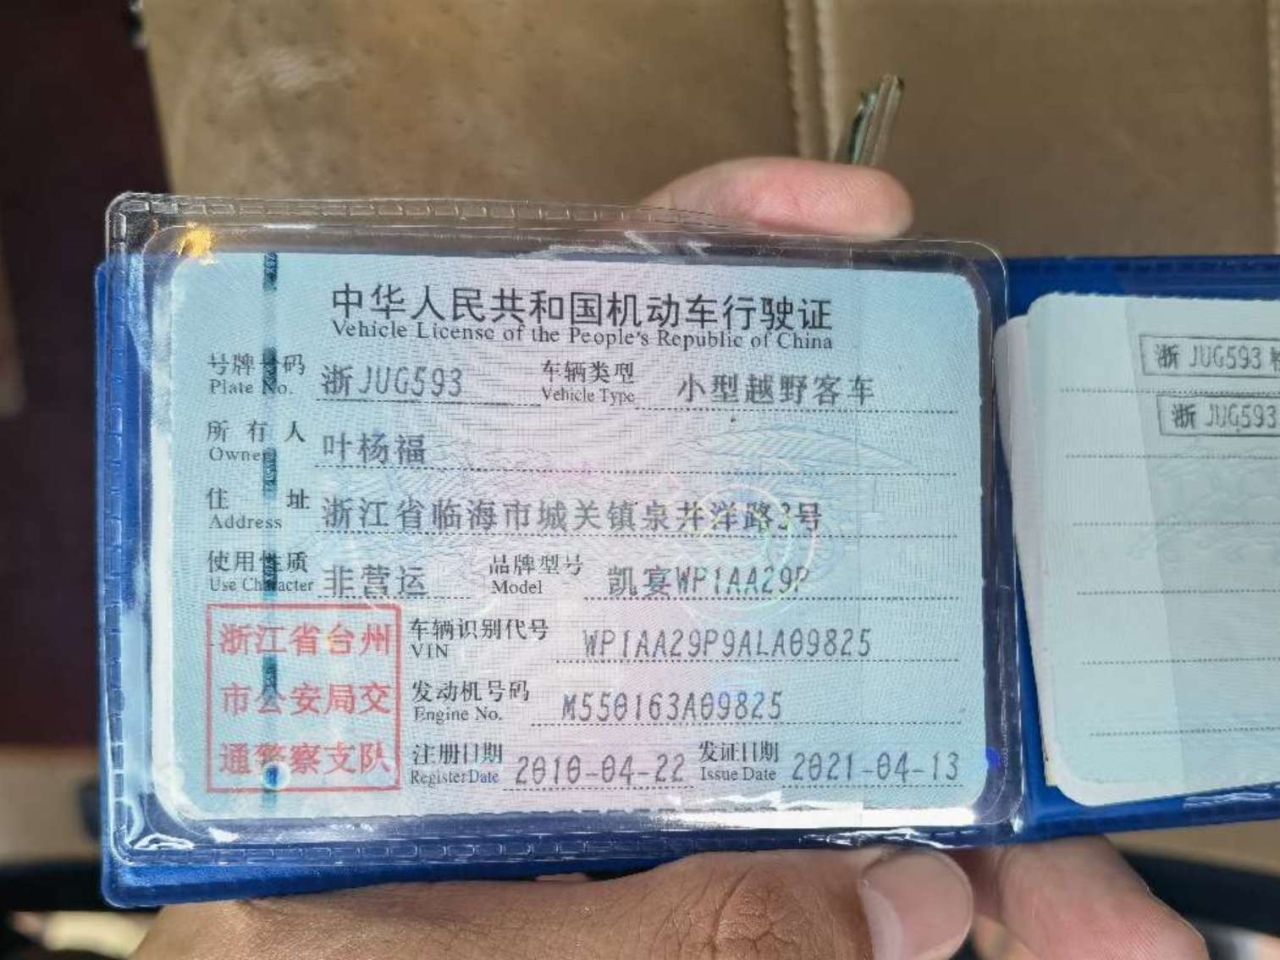 中华人民共和国机动车行驶证
Vehicle License of the People's Republic of China
号牌号码 浙JUG593 车辆类型 小型越野客车
Plate No. Vehicle Type
所有人 叶杨福
Owner
住址 浙江省临海市城关镇泉井洋路3号
Address
使用性质 非营运 品牌型号 凯宴WP1AA29P
Use Character Model
车辆识别代号 WP1AA29P9ALA09825
VIN
发动机号码 M550163A09825
Engine No.
注册日期 2010-04-22 发证日期 2021-04-13
Register Date Issue Date
浙江省台州
市公安局交
通警察支队
浙JUG593
浙JUG593